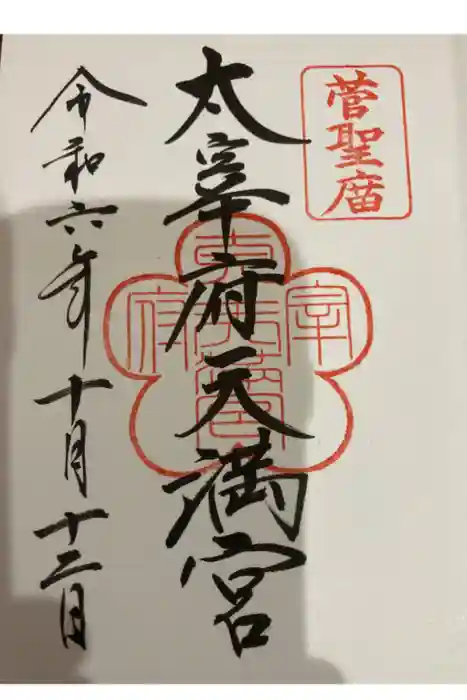 菅聖庿
太宰府天満宮
令和六年十月十三日